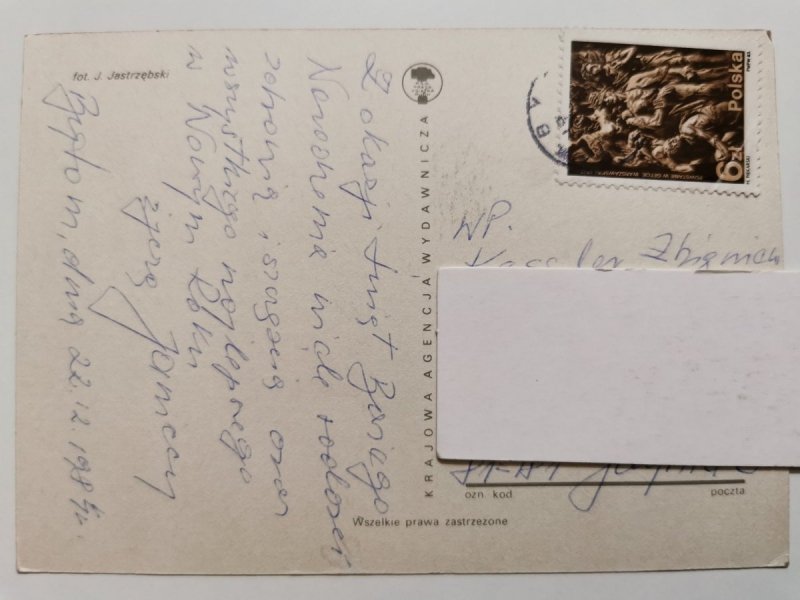 Z okazji Świąt Bożego
Narodzenia wiele radości
zdrowia i szczęścia oraz
wszystkiego najlepszego
w Nowym Roku
życzą
Bytom, dnia 22.12.1984r.
fot. J. Jastrzębski
KRAJOWA AGENCJA WYDAWNICZA
Polska
6 zł
POWSTANIE W GETCIE WARSZAWSKIM, 1943
WP.
Zbigniew
ozn. kod
poczta
Wszelkie prawa zastrzeżone